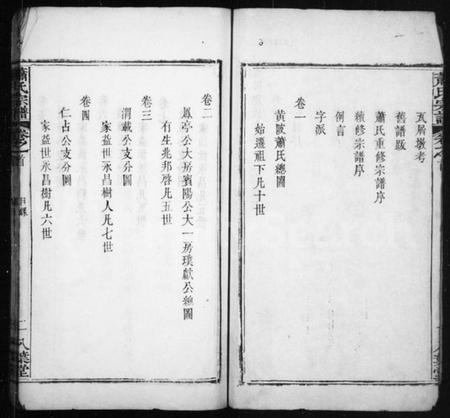 蕭氏宗譜
瓦屑墩考
舊譜跋
蕭氏重修宗譜序
續修宗譜序
例言
字派
卷一
黃陂蕭氏總圖
始遷祖下凡十世
卷二
鳳亭公大房賓陽公大一房璞獻公總圖
有生兆邦啓凡五世
卷三
渭載公支分圖
家益世永昌樹人凡七世
卷四
仁占公支分圖
家益世永昌樹凡六世
蕭氏宗譜
卷之首
目錄
二
八葉堂